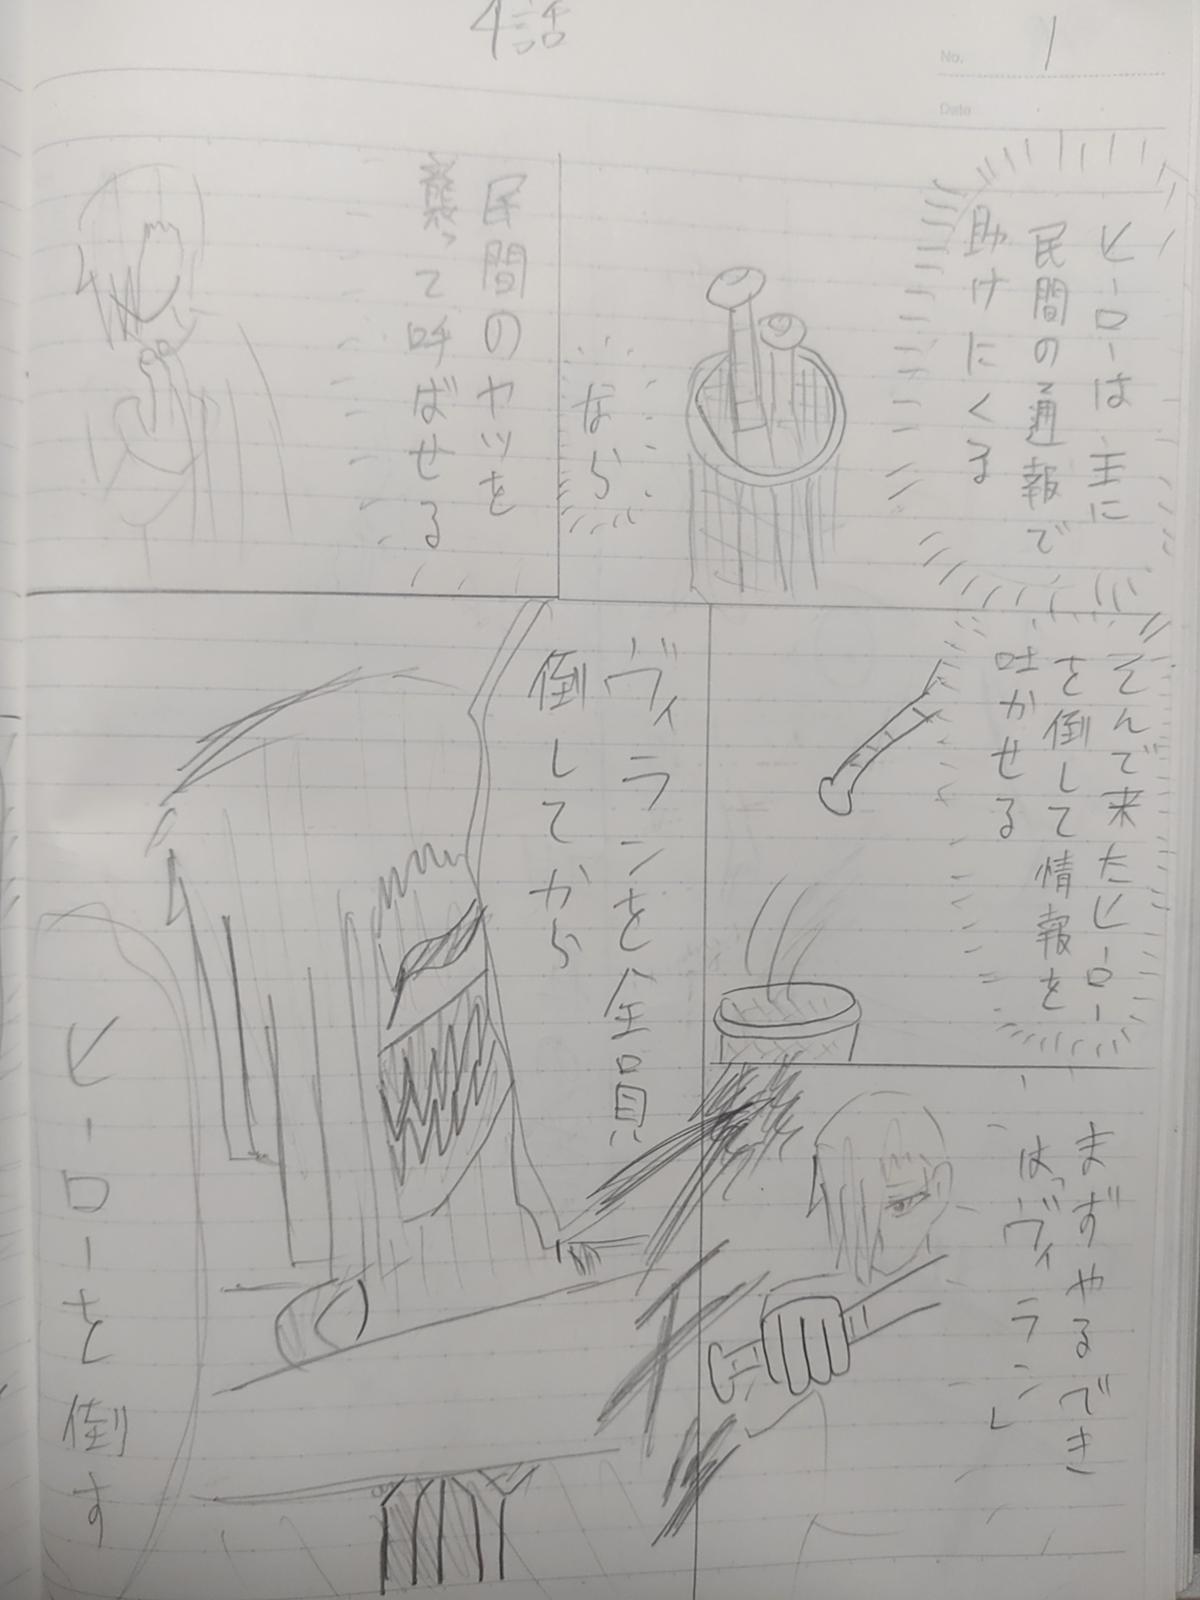 4話
No. 1
Date
ヒーローは主に
民間の通報で
助けにくる
なら
民間のヤツを
襲って呼ばせる
そんで来たヒーロー
を倒して情報を
吐かせる
まずやるべき
は「ヴィラン」
ヴィランを全員
倒してから
ヒーローを倒す